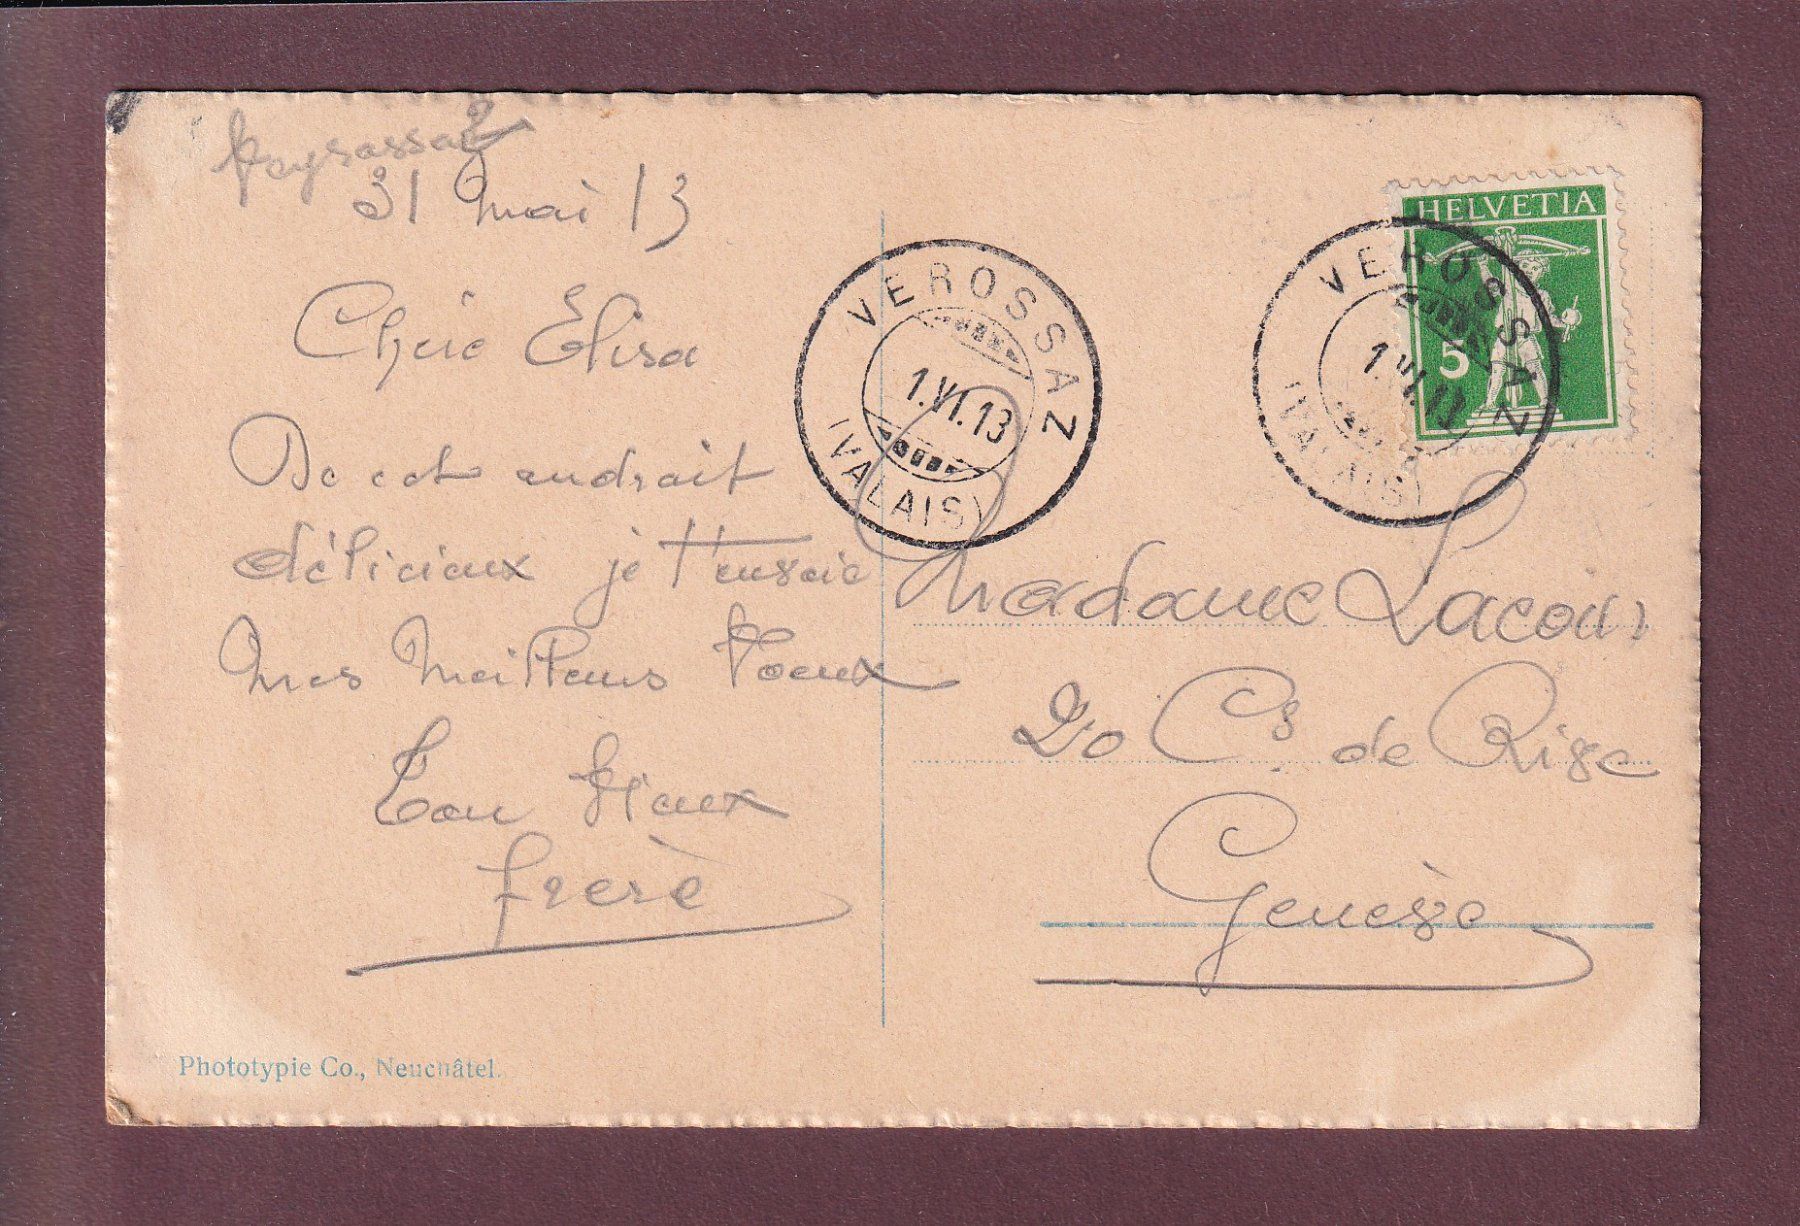 31 Mai 13
Chérie Elisa
De cet endroit
délicieux je t'envoie
Mes Meilleurs Voeux
Ton Vieux
frère
Phototypie Co., Neuchâtel.
VEROSSAZ
1.VI.13
(VALAIS)
HELVETIA
5
VEROSSAZ
1.VI.
(VALAIS)
Madame
20 Cs de Rive
Genève